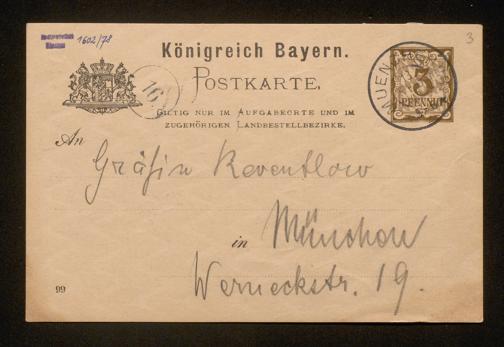 1602/78
3
Königreich Bayern.
POSTKARTE.
16
3
PFENNIG
MUEN
GILTIG NUR IM AUFGABEORTE UND IM
ZUGEHÖRIGEN LANDBESTELLBEZIRKE.
An
Gräfin Reventlow
in München
Werneckstr. 19.
99